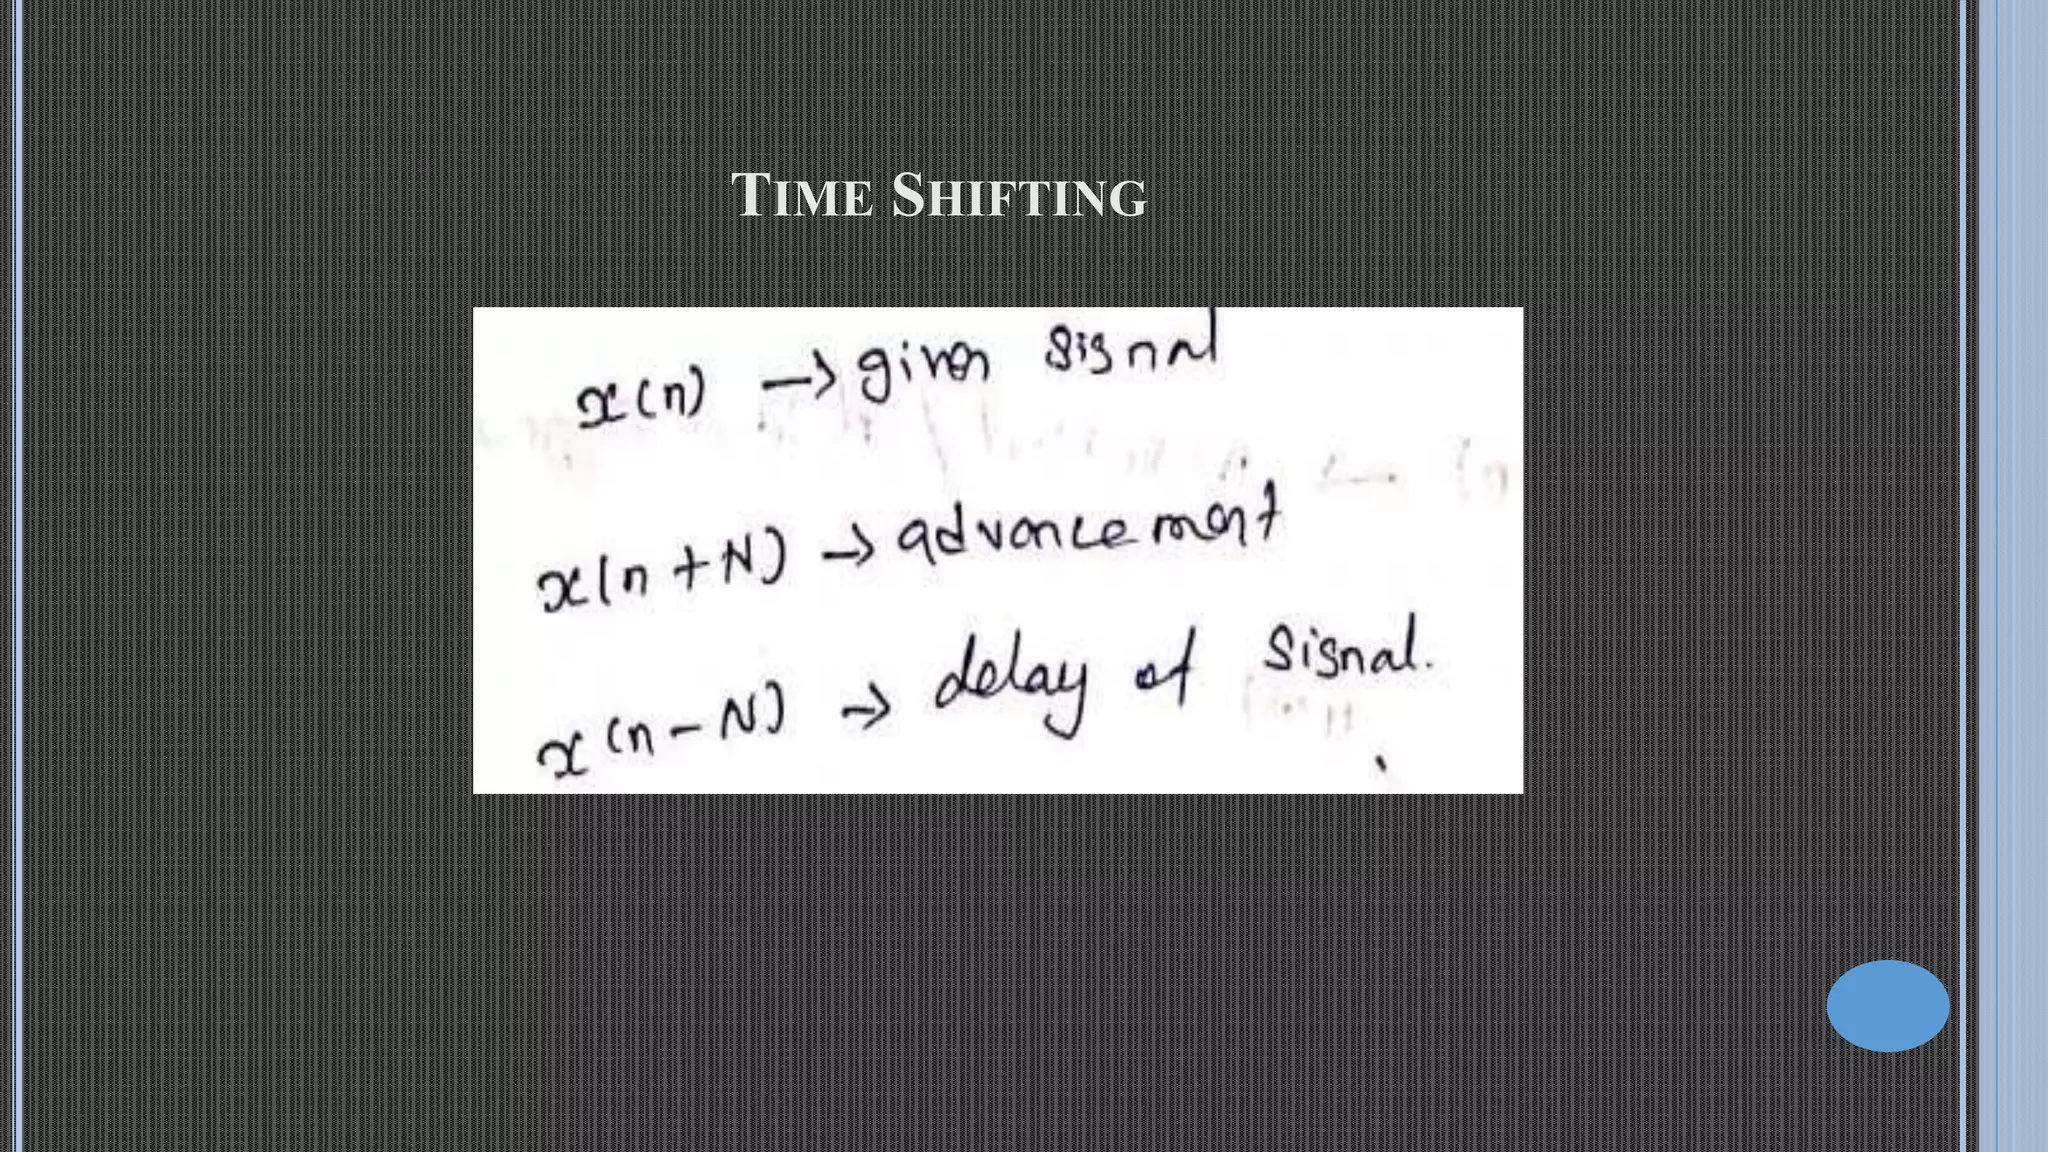 TIME SHIFTING
x(n) → given signal
x(n+N) → advancement
x(n-N) → delay of signal.